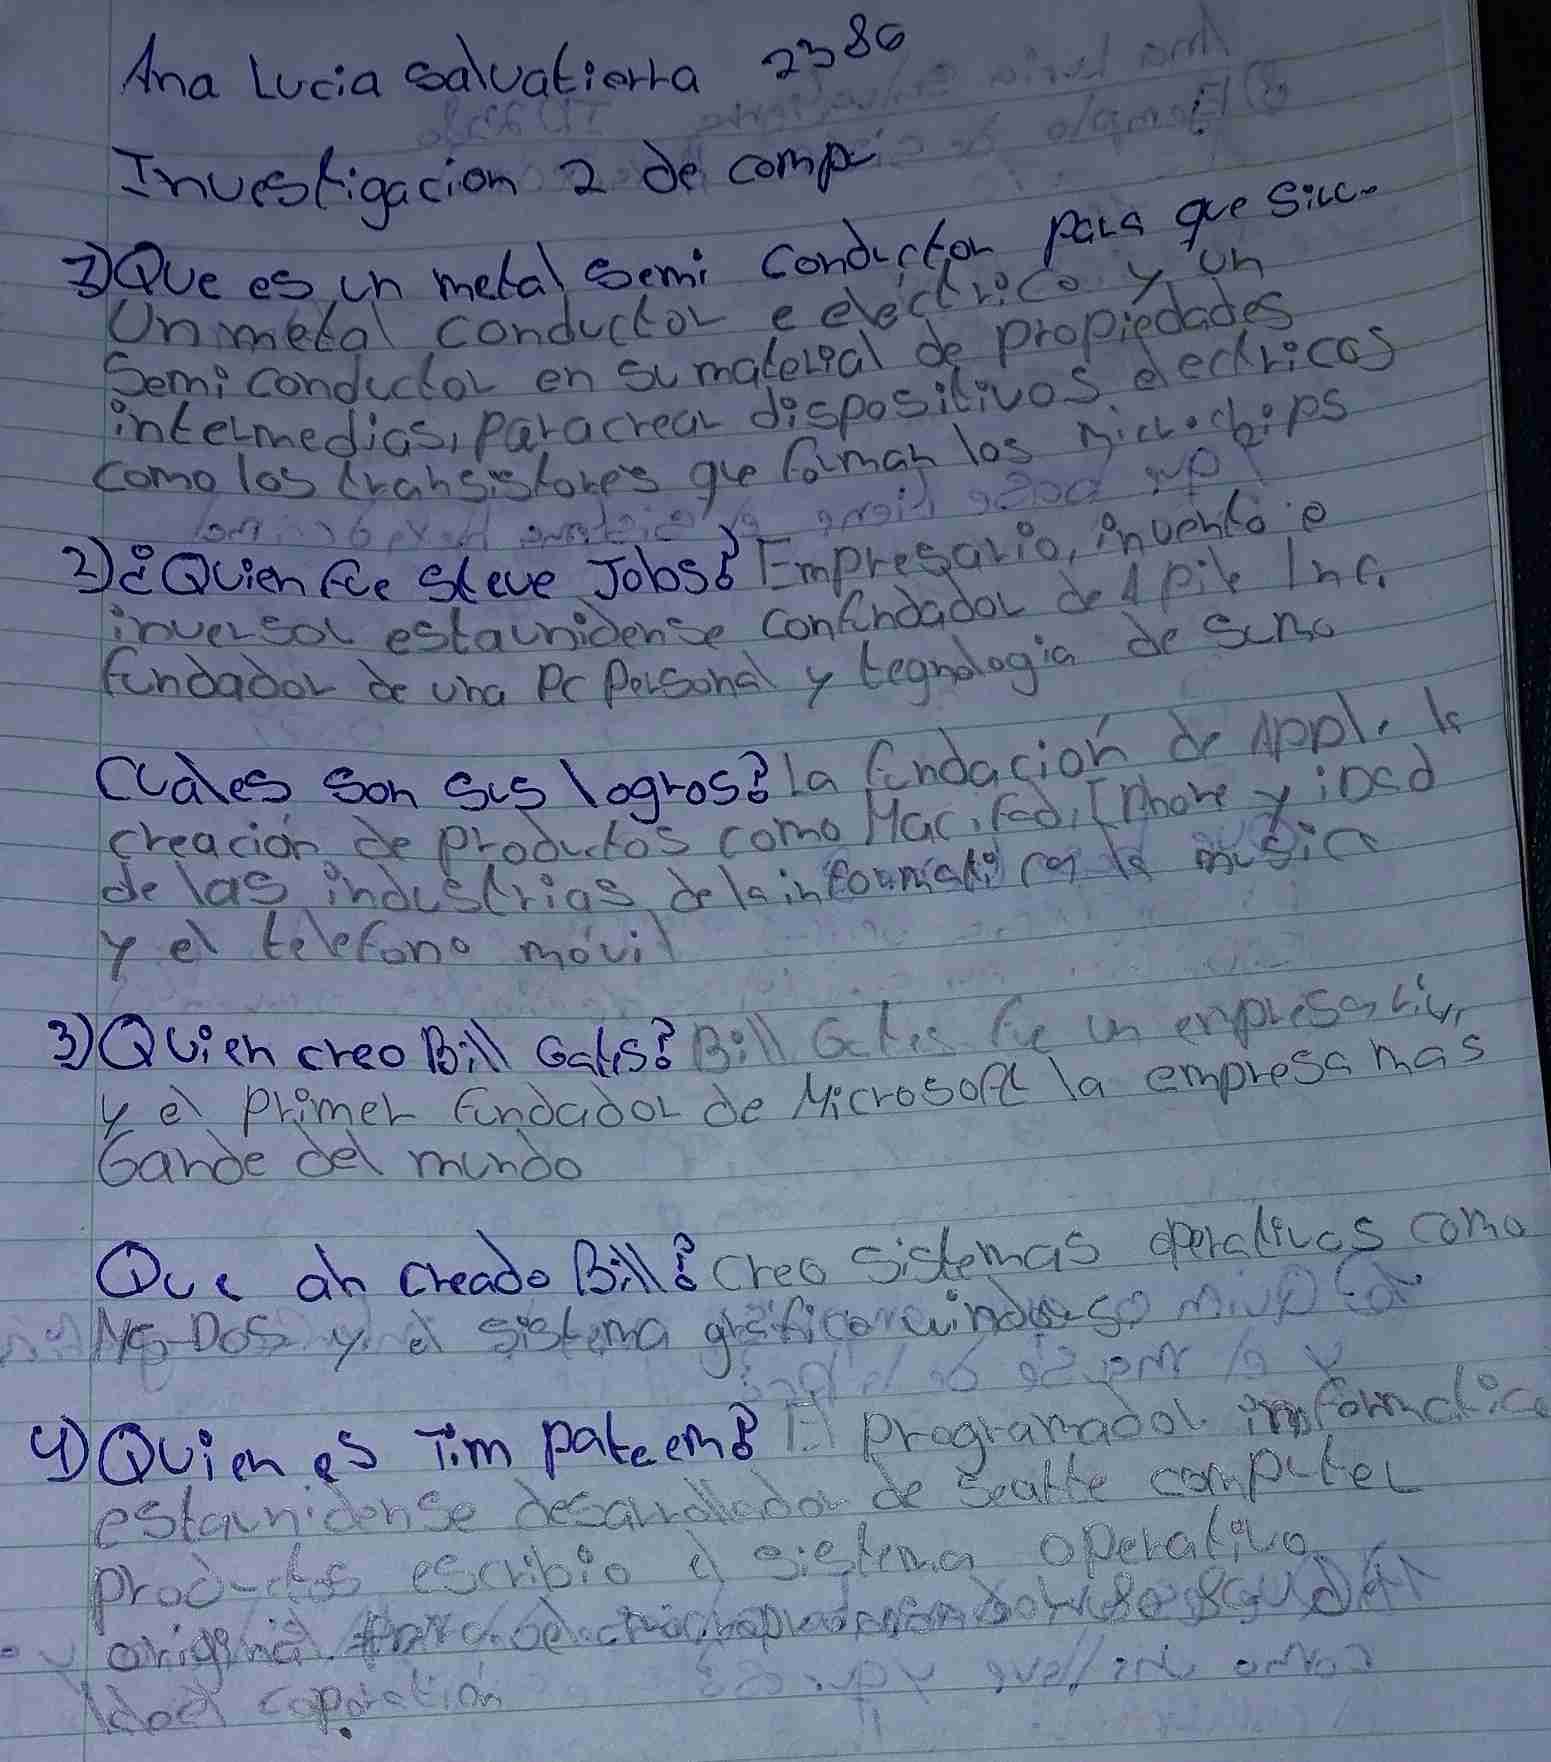 Ana Lucia Salvatierra 2386
Investigacion 2 de comp
1) Que es un metal Semi Conductor para que
Un metal conductor e electrico y un
Semi conductor en su material de propiedades
intermedias, para crear dispositivos electricos
como los transistores que forman los microchips
2) ¿Quien fue Steve Jobs? Empresario, invento e
inversor estaunidense confundador de Inc.
fundador de una PC Personal y tegnologia de Suma
Cuales Son Sus logros? la fundacion de Apple, la
creación de productos como Mac, IPhone y
de las industrias de la la musica
y el telefono móvil
3) Quien creo Bill Gates? Bill Gates fue un
y el primer fundador de Microsoft la empresa mas
Gande del mundo
Que ah creado Bill? Creo Sistemas operativos como
MS-DOS y el sistema grafico windows
4) Quien es Tim pateem? El programador imformatico
estaunidense desarrollador de Seatte computer
productos escribio el sistema operativo
original